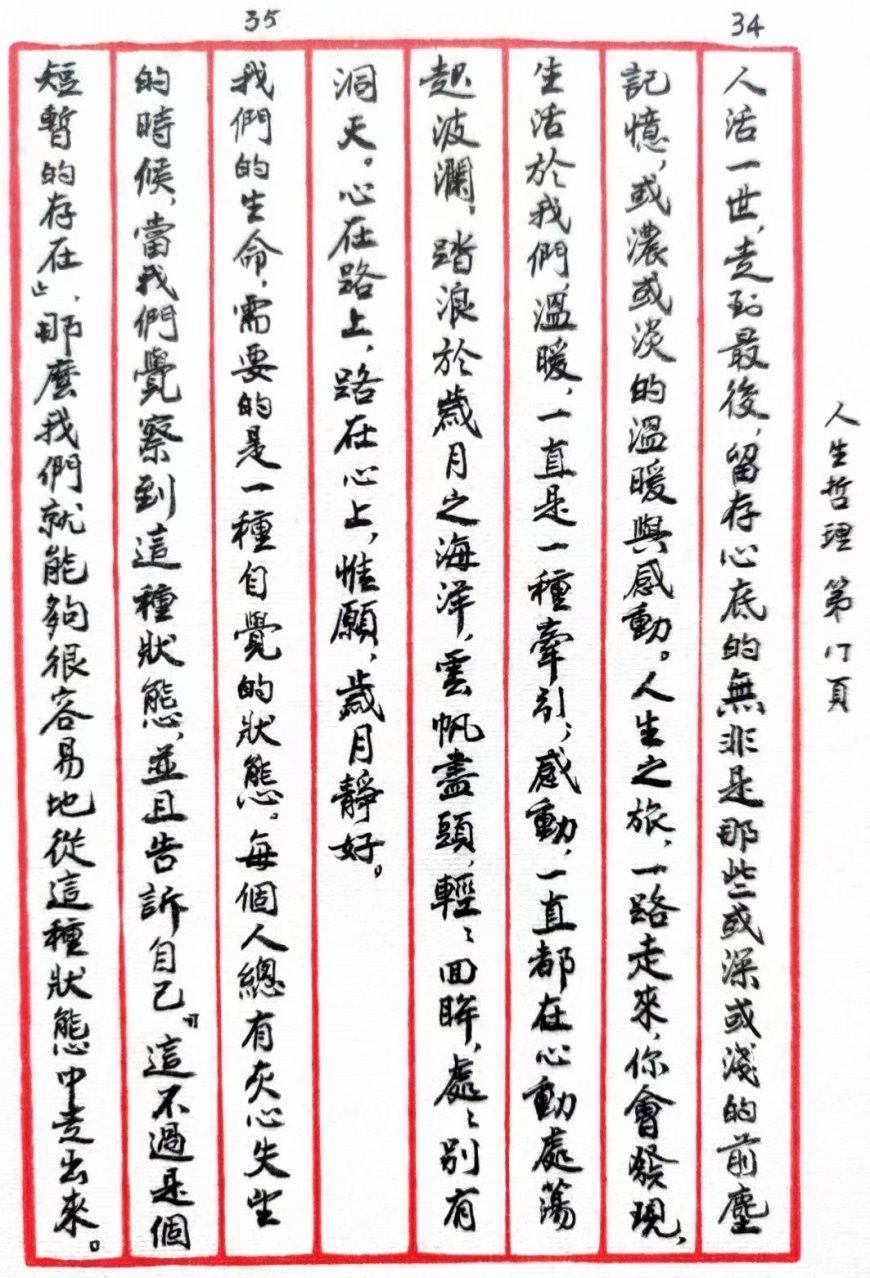 人生哲理 第17頁
34
人活一世，走到最後，留存心底的無非是那些或深或淺的前塵
記憶，或濃或淡的溫暖與感動。人生之旅，一路走來，你會發現，
生活於我們，溫暖，一直是一種牽引，感動，一直都在心動處蕩
起波瀾，踏浪於歲月之海洋，雲帆盡頭，輕輕回眸，處處別有
洞天。心在路上，路在心上，惟願，歲月靜好。
35
我們的生命，需要的是一種自覺的狀態。每個人總有灰心失望
的時候，當我們覺察到這種狀態，並且告訴自己『這不過是個
短暫的存在』，那麼我們就能夠很容易地從這種狀態中走出來。